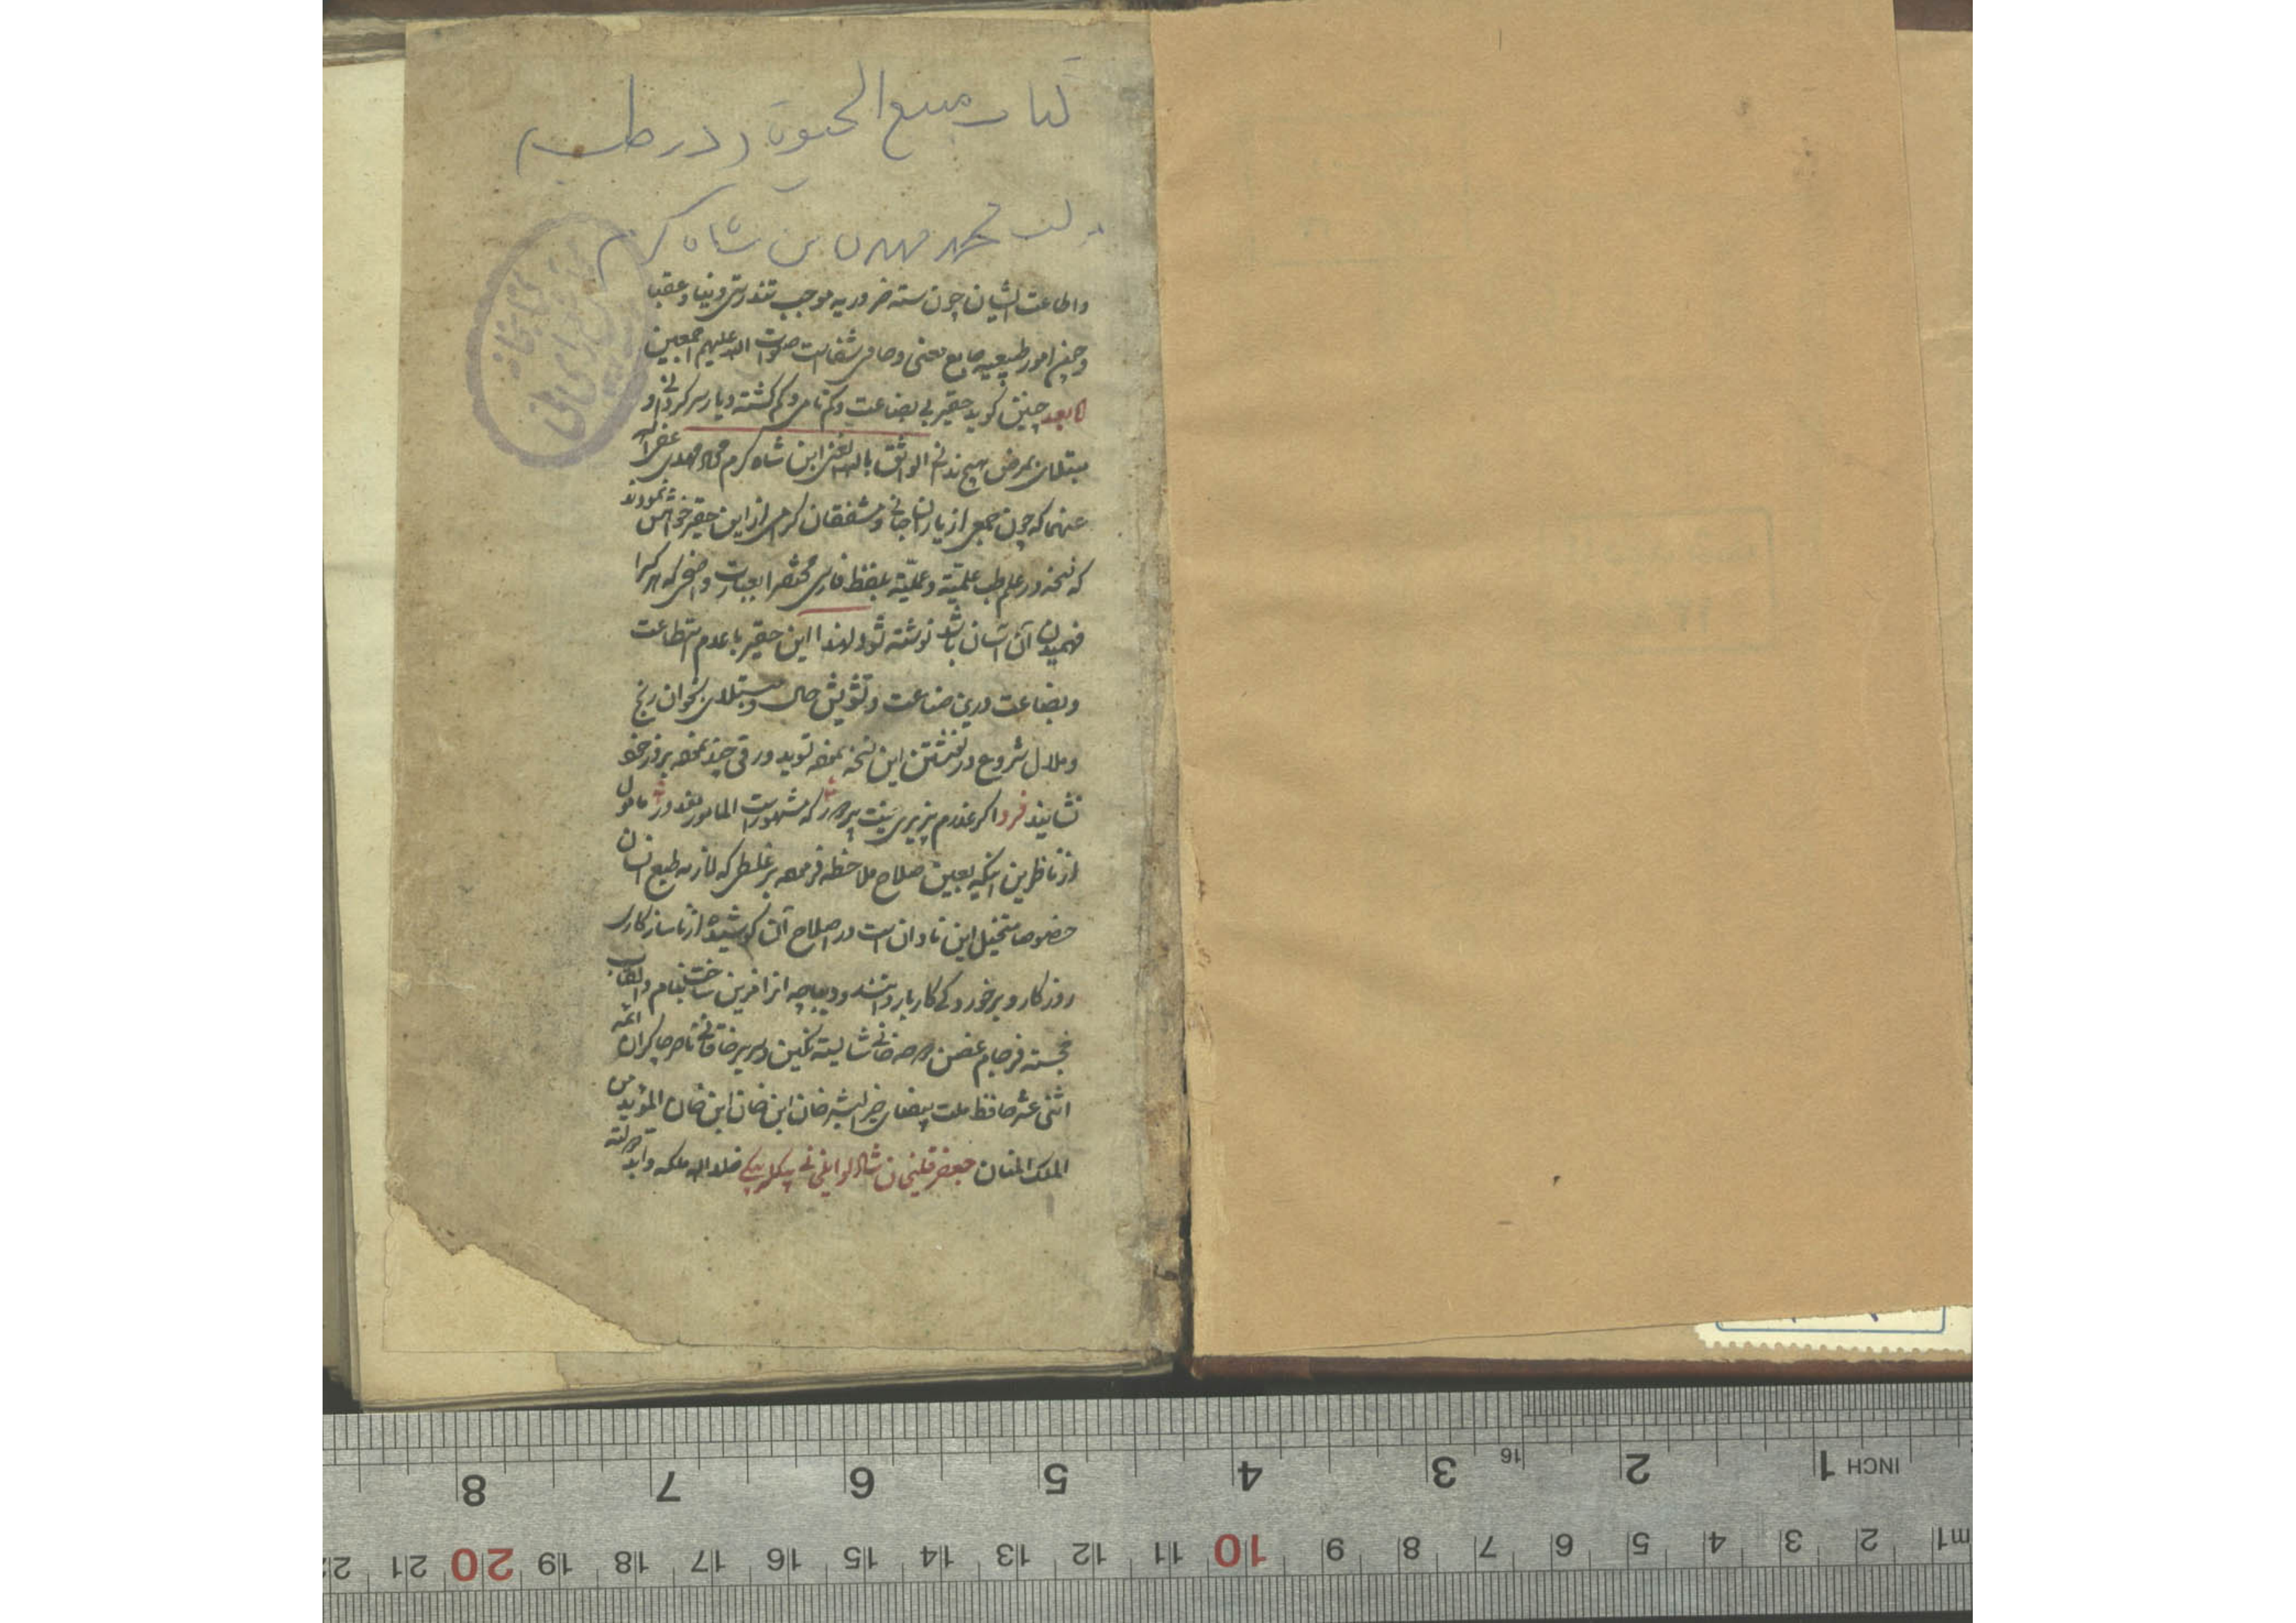 کتاب منبع الحیوة (در طب)
محمد مهدی بن شاه کرم
واطاعت ایشان چون سته ضروریه موجب تندرستی دنیا و عقبا
و چون امور طبیعیه جامع معنی و حاوی شفاست صلوات الله علیهم اجمعین
اما بعد چنین کوید حقیر بی بضاعت و کم نامی و کم کشته دیار سرکردانی و
مبتلای مرض هیچ ندانی الواثق بالله الغنی ابن شاه کرم محمد مهدی عفی الله
عنهما که چون جمعی از یاران جانی و مشفقان کرامی از این حقیر خواهش نمودند
که نسخه در علم طب علمیّه و عملیّه بلفظ فارسی مختصرا بعبارت واضحی که هر کرا
فهمیدن آن آسان باشد نوشته شود لهذا این حقیر با عدم استطاعت
و بضاعت درین صناعت و تشویش حال و مبتلای بخوان رنج
و ملال شروع در نوشتن این نسخه نموده ورقی چند نموده
نشایند فردا اکر عذرم پذیری که مشهور است المامور معذور مامول
از ناظرین اینکه بعین صلاح ملاحظه فرموده بر غلطی که لازمه طبع انسان
خصوصا متخیل این نادان است در اصلاح آن کوشیده از ناسازکاری
روزکار و برخوردکی کاربار دانند و دیباچه انرا مزین ساخت بنام و القاب
خجسته فرجام خانی شایسته نکین و سریر خاقانی ناصر چاکران ائمه
اثنی عشر حافظ ملت بیضای خیر البشر خان ابن خان ابن خان المؤید من
الملک المنان جعفر قلیخان بیکلربیکی خلد الله ملکه و ابد دولته
کتابخانه
مجلس شورای ملی